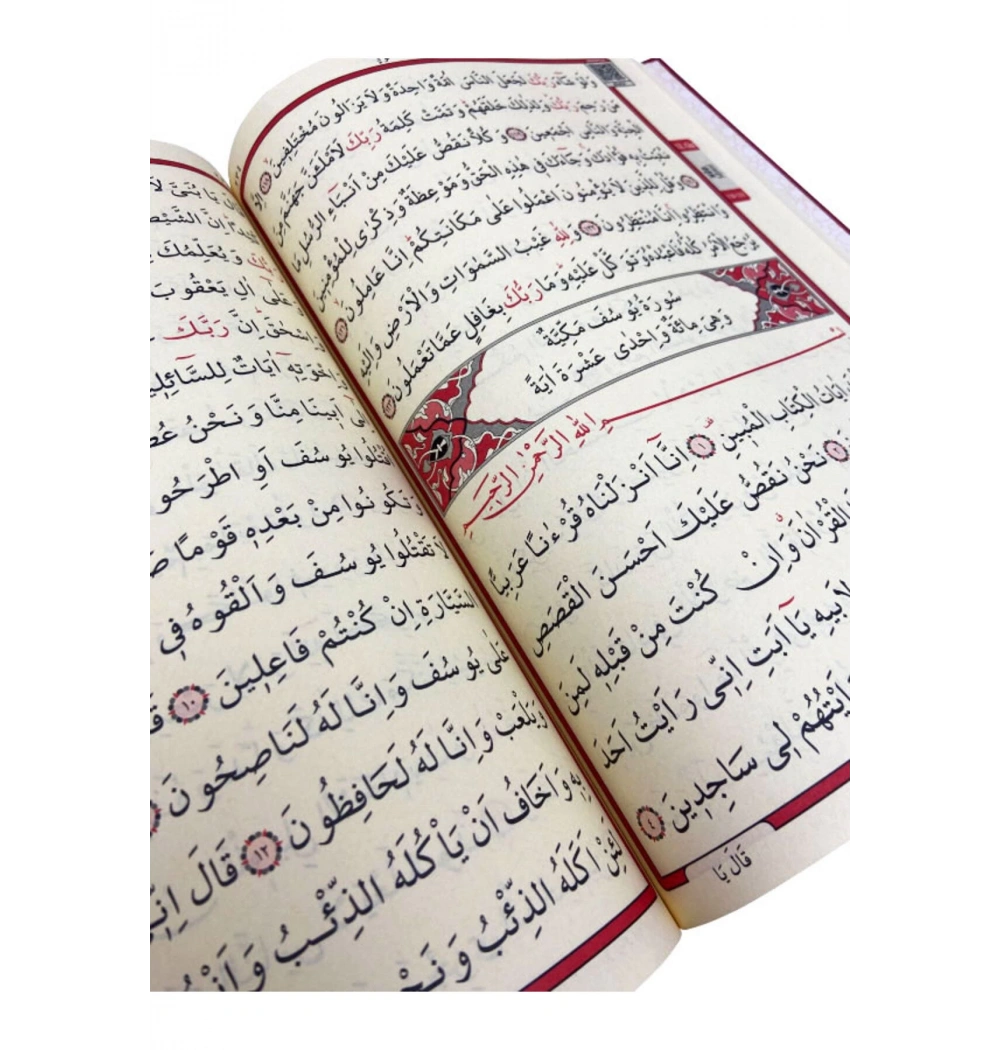 وَلَوْ شَٓاءَ رَبُّكَ لَجَعَلَ النَّاسَ اُمَّةً وَاحِدَةً وَلَا يَزَالُونَ مُخْتَلِفٖينَ ١١٨ اِلَّا
مَنْ رَحِمَ رَبُّكَ وَلِذٰلِكَ خَلَقَهُمْ وَتَمَّتْ كَلِمَةُ رَبِّكَ لَاَمْلَـَٔنَّ جَهَنَّمَ مِنَ
الْجِنَّةِ وَالنَّاسِ اَجْمَعٖينَ ١١٩ وَكُلًّا نَقُصُّ عَلَيْكَ مِنْ اَنْبَٓاءِ الرُّسُلِ مَا
نُثَبِّتُ بِهٖ فُؤَادَكَ وَجَٓاءَكَ فٖى هٰذِهِ الْحَقُّ وَمَوْعِظَةٌ وَذِكْرٰى لِلْمُؤْمِنٖينَ
١٢٠ وَقُلْ لِلَّذٖينَ لَا يُؤْمِنُونَ اعْمَلُوا عَلٰى مَكَانَتِكُمْ اِنَّا عَامِلُونَ ١٢١
وَانْتَظِرُوا اِنَّا مُنْتَظِرُونَ ١٢٢ وَلِلّٰهِ غَيْبُ السَّمٰوَاتِ وَالْاَرْضِ وَاِلَيْهِ
يُرْجَعُ الْاَمْرُ كُلُّهُ فَاعْبُدْهُ وَتَوَكَّلْ عَلَيْهِ وَمَا رَبُّكَ بِغَافِلٍ عَمَّا تَعْمَلُونَ ١٢٣
سُورَةُ يُوسُفَ مَكِّيَّةٌ
وَهِىَ مِائَةٌ وَاِحْدٰى عَشْرَةَ اٰيَةً
اللّٰهِ الرَّحْمٰنِ الرَّحٖيمِ
اٰيَاتُ الْكِتَابِ الْمُبٖينِ ١ اِنَّٓا اَنْزَلْنَاهُ قُرْءٰنًا عَرَبِيًّا
٢ نَحْنُ نَقُصُّ عَلَيْكَ اَحْسَنَ الْقَصَصِ
الْقُرْاٰنَ وَاِنْ كُنْتَ مِنْ قَبْلِهٖ لَمِنَ
لِاَبٖيهِ يَٓا اَبَتِ اِنّٖى رَاَيْتُ اَحَدَ
رَاَيْتُهُمْ لٖى سَاجِدٖينَ ٤
قَالَ يَا
يَا بُنَىَّ لَا
اِنَّ الشَّيْطَ
وَيُعَلِّمُكَ
عَلٰٓى اٰلِ يَعْقُوبَ
اِنَّ رَبَّكَ
اِخْوَتِهٖٓ اٰيَاتٌ لِلسَّٓائِلٖي
اَبٖينَا مِنَّا وَنَحْنُ عُصْ
اُقْتُلُوا يُوسُفَ اَوِ اطْرَحُو
وَتَكُونُوا مِنْ بَعْدِهٖ قَوْمًا صَ
لَا تَقْتُلُوا يُوسُفَ وَاَلْقُوهُ فٖى
السَّيَّارَةِ اِنْ كُنْتُمْ فَاعِلٖينَ ١٠ قَ
عَلٰى يُوسُفَ وَاِنَّا لَهُ لَنَاصِحُونَ
وَيَلْعَبْ وَاِنَّا لَهُ لَحَافِظُونَ ١٢ قَالَ اِنّٖ
بِهٖ وَاَخَافُ اَنْ يَاْكُلَهُ الذِّئْبُ وَاَنْتُ
لَئِنْ اَكَلَهُ الذِّئْبُ وَنَحْ